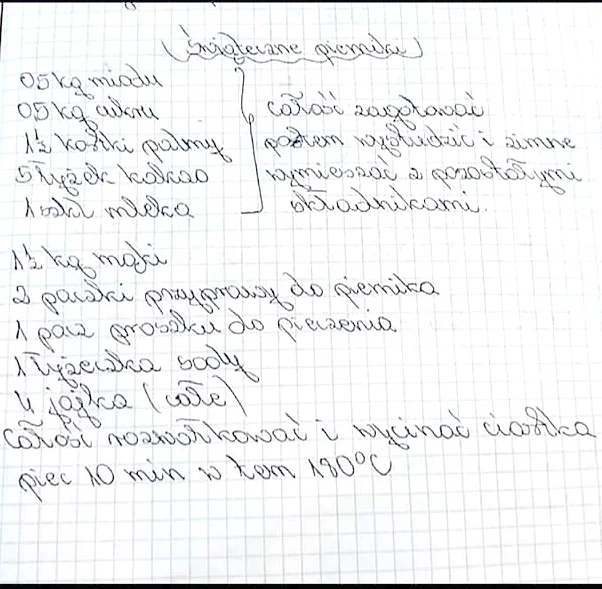 Świąteczne pierniki
05 kg miodu
05 kg cukru
1½ kostki palmy
5 łyżek kakao
1 szkl mleka
całość zagotować
potem wystudzić i zimne
wymieszać z pozostałymi
składnikami.
1½ kg mąki
2 paczki przyprawy do piernika
1 pacz proszku do pieczenia
1 łyżeczka sody
4 jajka (całe)
całość rozwałkować i wycinać ciastka
piec 10 min w tem 180°C